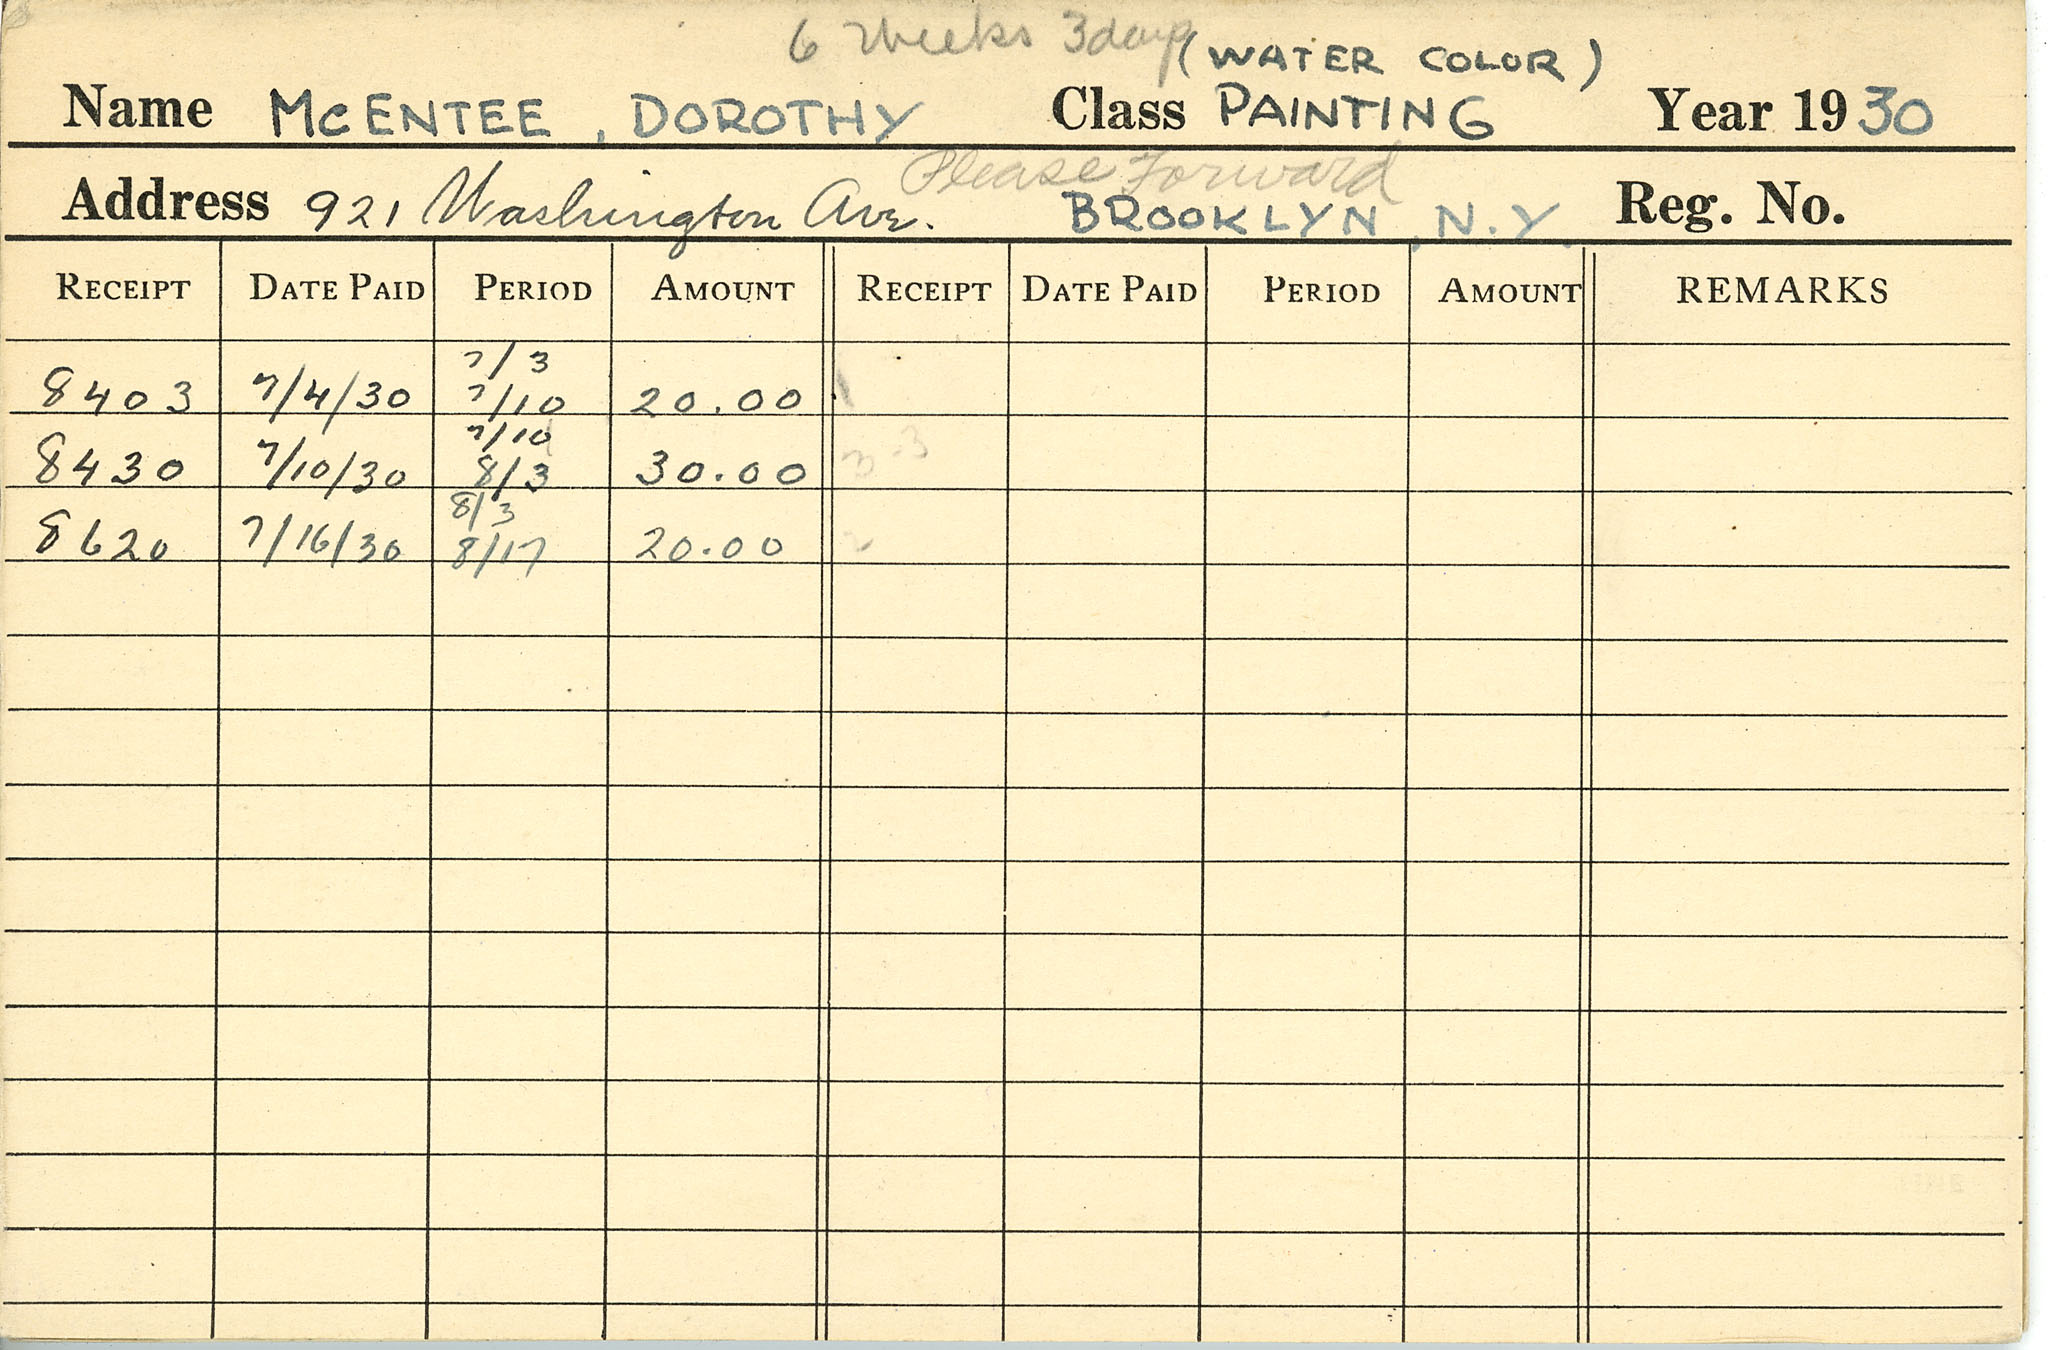 6 Weeks 3 days (WATER COLOR)
Name McENTEE, DOROTHY Class PAINTING Year 1930
Please Forward
Address 921 Washington Ave. BROOKLYN, N.Y. Reg. No.
RECEIPT DATE PAID PERIOD AMOUNT RECEIPT DATE PAID PERIOD AMOUNT REMARKS
7/3
8403 7/4/30 7/10 20.00 1
7/10
8430 7/10/30 8/3 30.00 3-3
8/3
8620 7/16/30 8/17 20.00 2